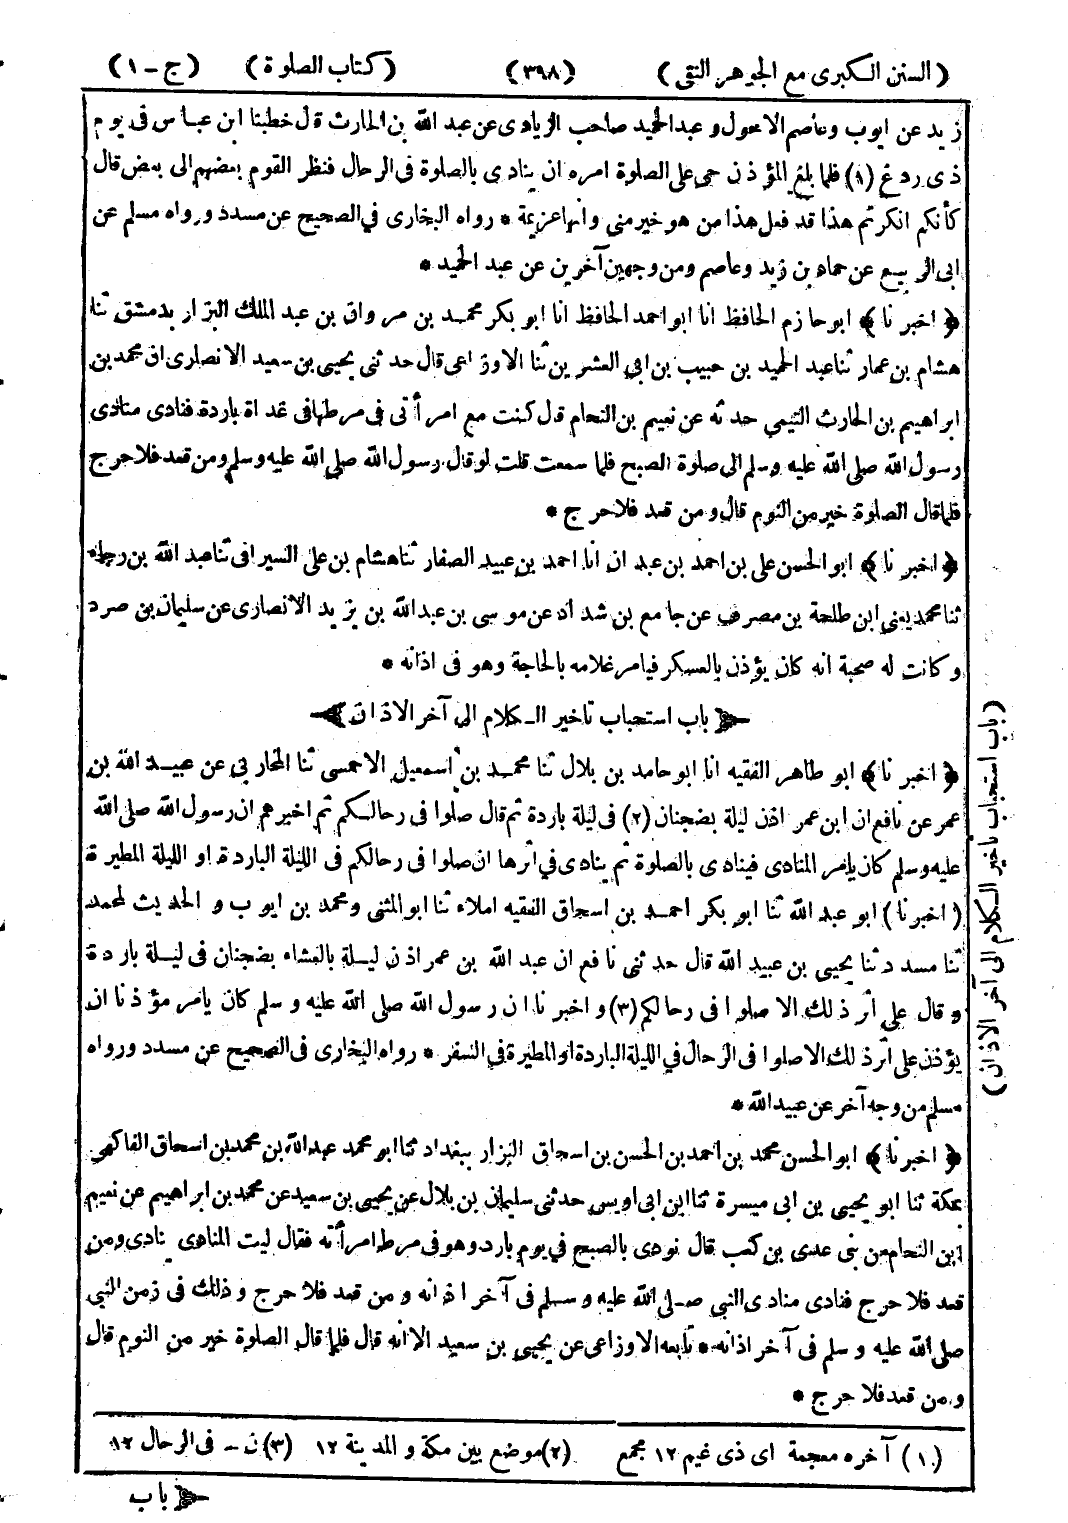 (السنن الكبرى مع الجوهر النقى) (٣٩٨) (كتاب الصلوة) (ج-١)
زيد عن ايوب وعاصم الاحول وعبد الحميد صاحب الزيادى عن عبد الله بن الحارث قال خطبنا ابن عباس فى يوم
ذى ردغ (١) فلما بلغ المؤذن حى على الصلوة امره ان ينادى بالصلوة فى الرحال فنظر القوم بعضهم الى بعض قال
كأنكم انكرتم هذا قد فعل هذا من هو خير منى وانها عزيمة * رواه البخارى فى الصحيح عن مسدد ورواه مسلم عن
ابى الربيع عن حماد بن زيد وعاصم ومن وجهين آخرين عن عبد الحميد *
﴿اخبرنا﴾ ابو حازم الحافظ انا ابو احمد الحافظ انا ابو بكر محمد بن مروان بن عبد الملك البزار بدمشق ثنا
هشام بن عمار ثنا عبد الحميد بن حبيب بن ابى العشرين ثنا الاوزاعى قال حدثنى يحيى بن سعيد الانصارى ان محمد بن
ابراهيم بن الحارث التيمى حدثه عن نعيم بن النحام قال كنت مع امرأتى فى مرطها فى غداة باردة فنادى منادى
رسول الله صلى الله عليه وسلم الى صلوة الصبح فلما سمعت قلت لو قال رسول الله صلى الله عليه وسلم ومن قعد فلا حرج
فلما قال الصلوة خير من النوم قال ومن قعد فلا حرج *
﴿اخبرنا﴾ ابو الحسن على بن احمد بن عبدان انا احمد بن عبيد الصفار ثنا هشام بن على السيرافى ثنا عبد الله بن رجاء
ثنا محمد يعنى ابن طلحة بن مصرف عن جامع بن شداد عن موسى بن عبد الله بن يزيد الانصارى عن سليمان بن صرد
وكانت له صحبة انه كان يؤذن بالعسكر فيامر غلامه بالحاجة وهو فى اذانه *
باب استحباب تاخير الكلام الى آخر الاذان
﴿اخبرنا﴾ ابو طاهر الفقيه انا ابو حامد بن بلال ثنا محمد بن اسمعيل الاحمسى ثنا المحاربى عن عبيد الله بن
عمر عن نافع ان ابن عمر اذن ليلة بضجنان (٢) فى ليلة باردة ثم قال صلوا فى رحالكم ثم اخبرهم ان رسول الله صلى الله
عليه وسلم كان يامر المنادى فينادى بالصلوة ثم ينادى فى اثرها ان صلوا فى رحالكم فى الليلة الباردة او الليلة المطيرة
(اخبرنا) ابو عبد الله ثنا ابو بكر احمد بن اسحاق الفقيه املاء ثنا ابو المثنى ومحمد بن ايوب والحديث لمحمد
ثنا مسدد ثنا يحيى بن عبيد الله قال حدثنى نافع ان عبد الله بن عمر اذن ليلة بالعشاء بضجنان فى ليلة باردة
وقال على اثر ذلك الا صلوا فى رحالكم (٣) واخبرنا ان رسول الله صلى الله عليه وسلم كان يامر مؤذنا ان
يؤذن على اثر ذلك الا صلوا فى الرحال فى الليلة الباردة او المطيرة فى السفر * رواه البخارى فى الصحيح عن مسدد ورواه
مسلم من وجه آخر عن عبيد الله *
﴿اخبرنا﴾ ابو الحسن محمد بن احمد بن الحسن بن اسحاق البزار ببغداد ثنا ابو محمد عبد الله بن محمد بن اسحاق الفاكهى
بمكة ثنا ابو يحيى بن ابى ميسرة ثنا ابن ابى اويس حدثنى سليمان بن بلال عن يحيى بن سعيد عن محمد بن ابراهيم عن نعيم
ابن النحام من بنى عدى بن كعب قال نودى بالصبح فى يوم بارد وهو فى مرط امرأته فقال ليت المنادى ينادى ومن
قعد فلا حرج فنادى منادى النبى صلى الله عليه وسلم فى آخر اذانه ومن قعد فلا حرج وذلك فى زمن النبى
صلى الله عليه وسلم فى آخر اذانه * تابعه الاوزاعى عن يحيى بن سعيد الا انه قال فلما قال الصلوة خير من النوم قال
ومن قعد فلا حرج *
(١) آخره معجمة اى ذى غيم ١٢ مجمع (٢) موضع بين مكة والمدينة ١٢ (٣) ن - فى الرحال ١٢
باب
(باب استحباب تاخير الكلام الى آخر الاذان)